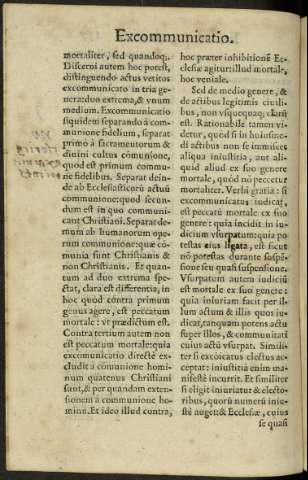 Excommunicatio.
mortaliter, sed quandoq;.
Discerni autem hoc potest,
distinguendo actus vetitos
excommunicato in tria ge-
nera: duo extrema, & vnum
medium. Excommunicatio
siquidem separando à com-
munione fidelium, separat
primò à sacramentorum &
diuini cultus cōmunione,
quod est primum commu-
ne fidelibus. Separat dein-
de ab Ecclesiasticorū actuū
communione: quod secun-
dum est in quo communi-
cant Christiani. Separat de-
mum ab humanorum ope-
rum communione: quæ cō-
munia sunt Christianis &
non Christianis. Et quan-
tum ad duo extrema spe-
ctat, clara est differentia, in
hoc quòd contra primum
genus agere, est peccatum
mortale: vt prædictum est.
Contra tertium autem non
est peccatum mortale: quia
excommunicatio directè ex-
cludit à cōmunione homi-
num quatenus Christiani
sunt, & per quandam exten-
sionem a communione ho-
minū. Et ideo illud contra,
hoc præter inhibitionē Ec-
clesiæ agitur: illud mortale,
hoc veniale.
Sed de medio genere, &
de actibus legitimis ciuili-
bus, non vsquequaq; clarū
est. Rationabile tamen vi-
detur, quod si in huiusmo-
di actibus non se immiscet
aliqua iniustitia, aut ali-
quid aliud ex suo genere
mortale, quòd nō peccetur
mortaliter. Verbi gratia: si
excommunicatus iudicat,
est peccatū mortale ex suo
genere: quia incidit in iu-
dicium vsurpatum: quia po-
testas eius ligata, est sicut
nō potestas durante suspē-
sione seu quasi suspensione.
Vsurpatum autem iudiciū
est mortale ex suo genere:
quia iniuriam facit per il-
lum actum & illis quos iu-
dicat, tanquam potens actu
super illos, & communitati
cuius actū vsurpat. Simili-
ter si excōicatus electus ac-
ceptat: iniustitiā enim ma-
nifestè incurrit. Et similiter
si eligit iniuriatur & electo-
ribus, quorū numerū iniu-
stè auget: & Ecclesiæ, cuius
se quasi